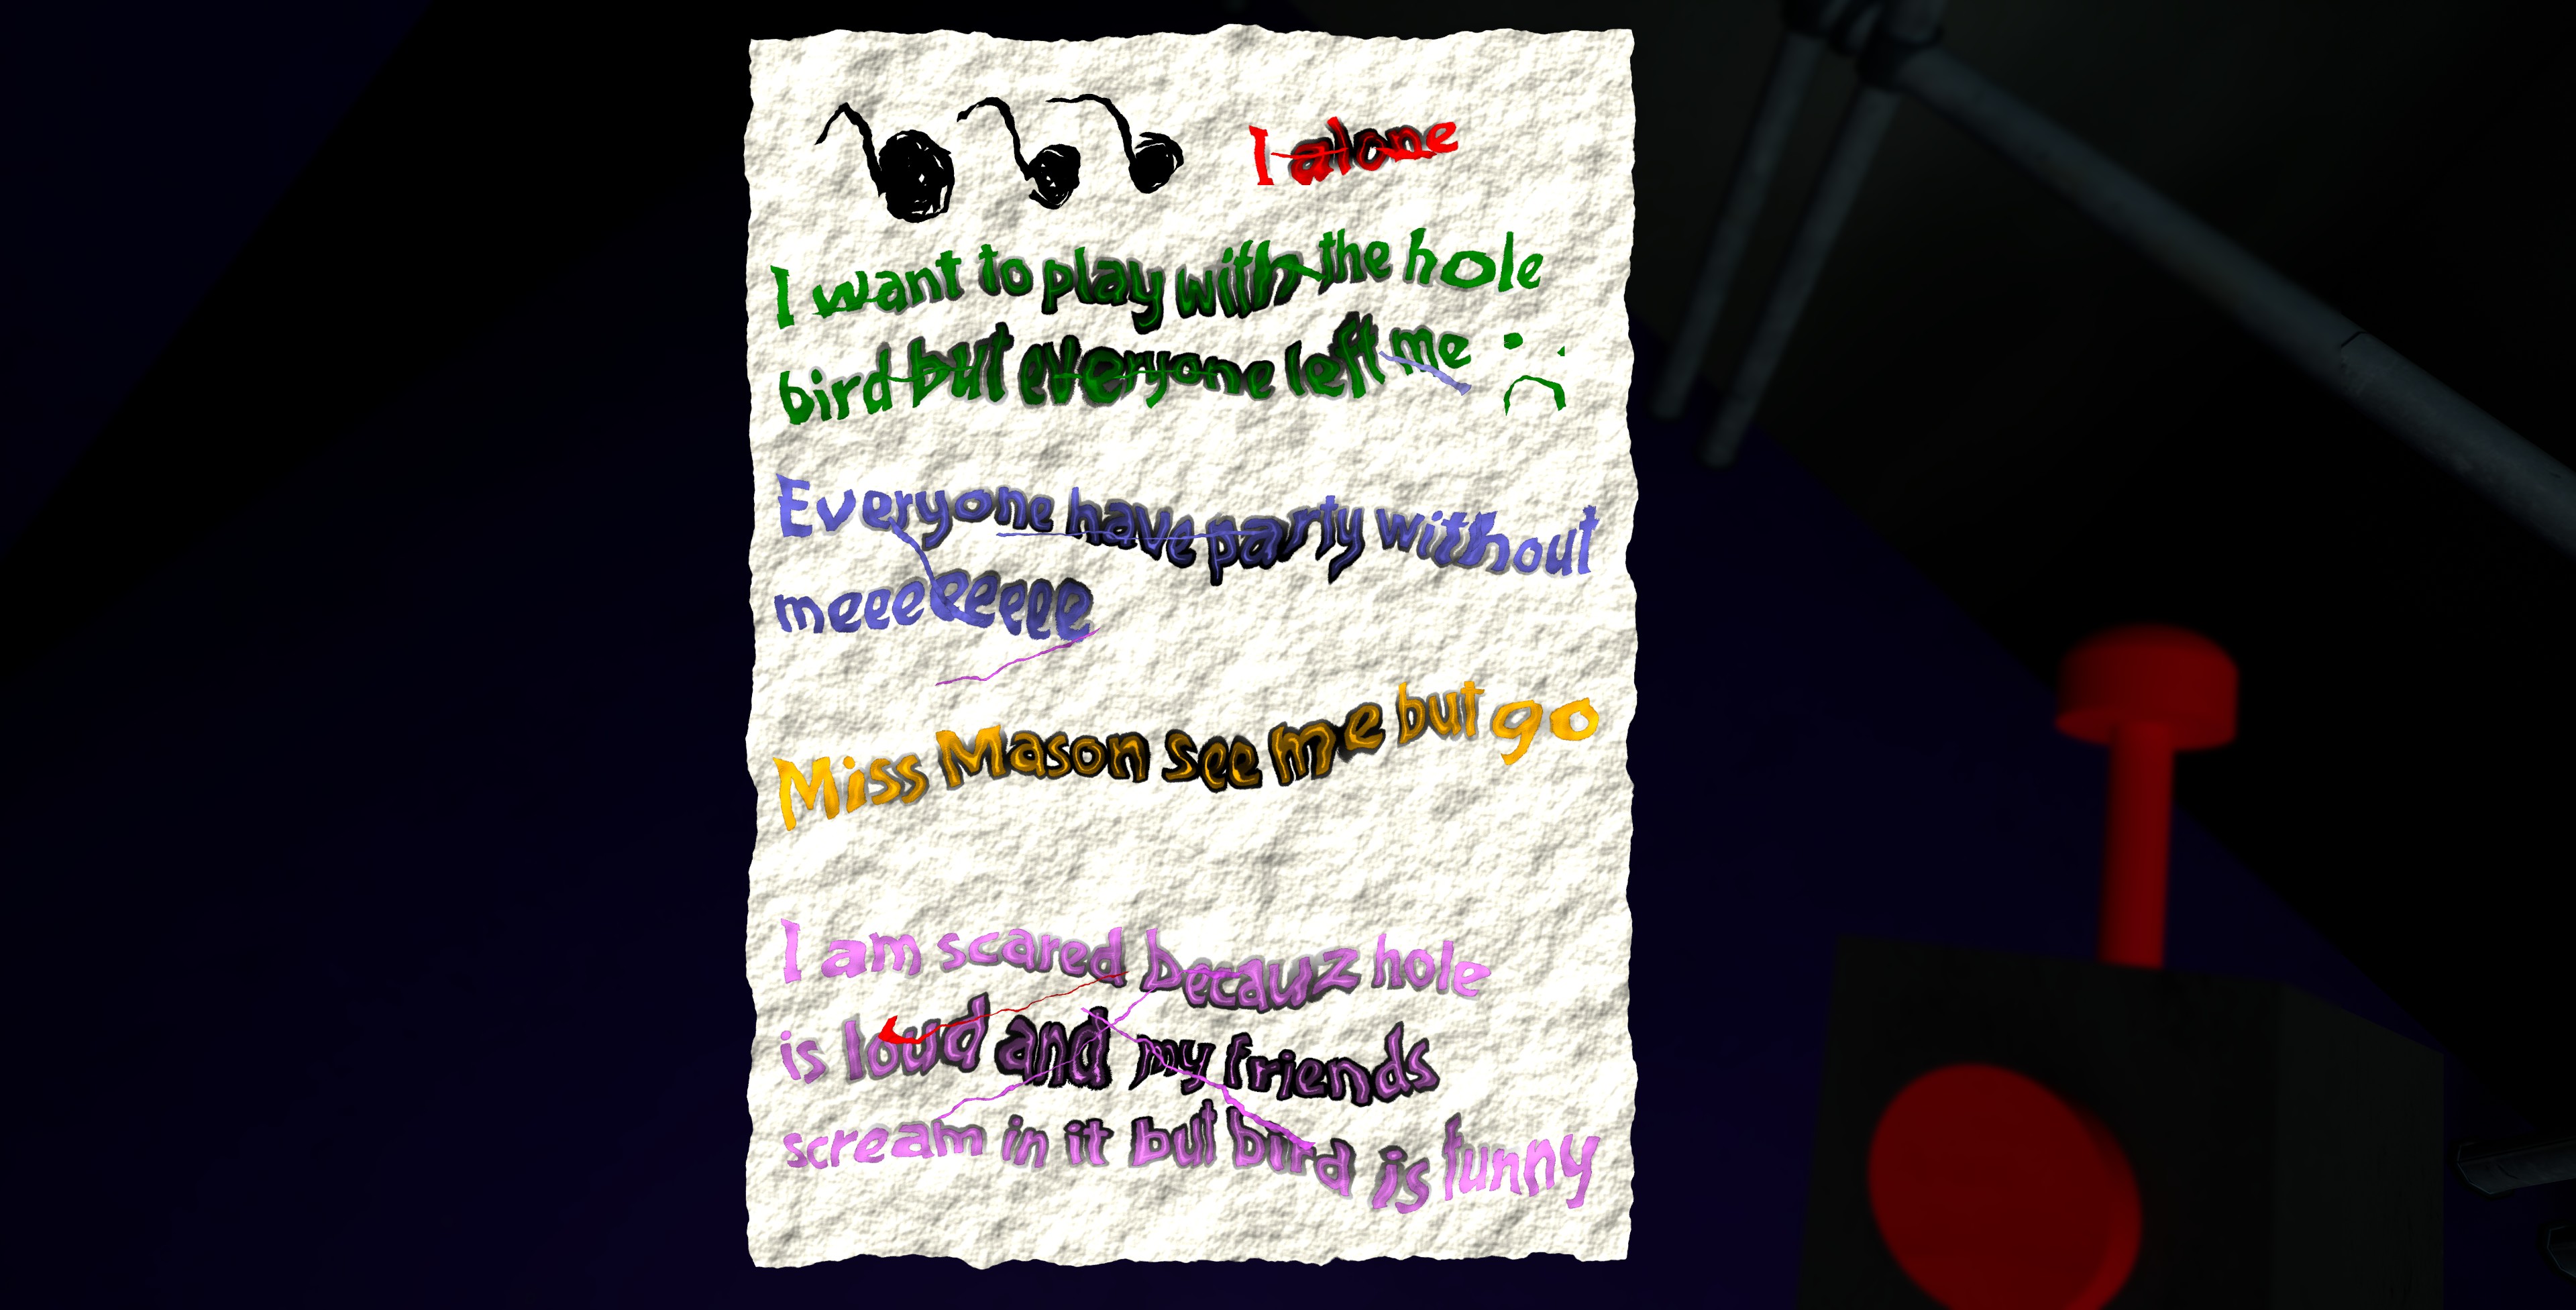 I alone
I want to play with the hole
bird but everyone left me :(
Everyone have party without
meeeeeeee
Miss Mason see me but go
I am scared becauz hole
is loud and my friends
scream in it but bird is funny